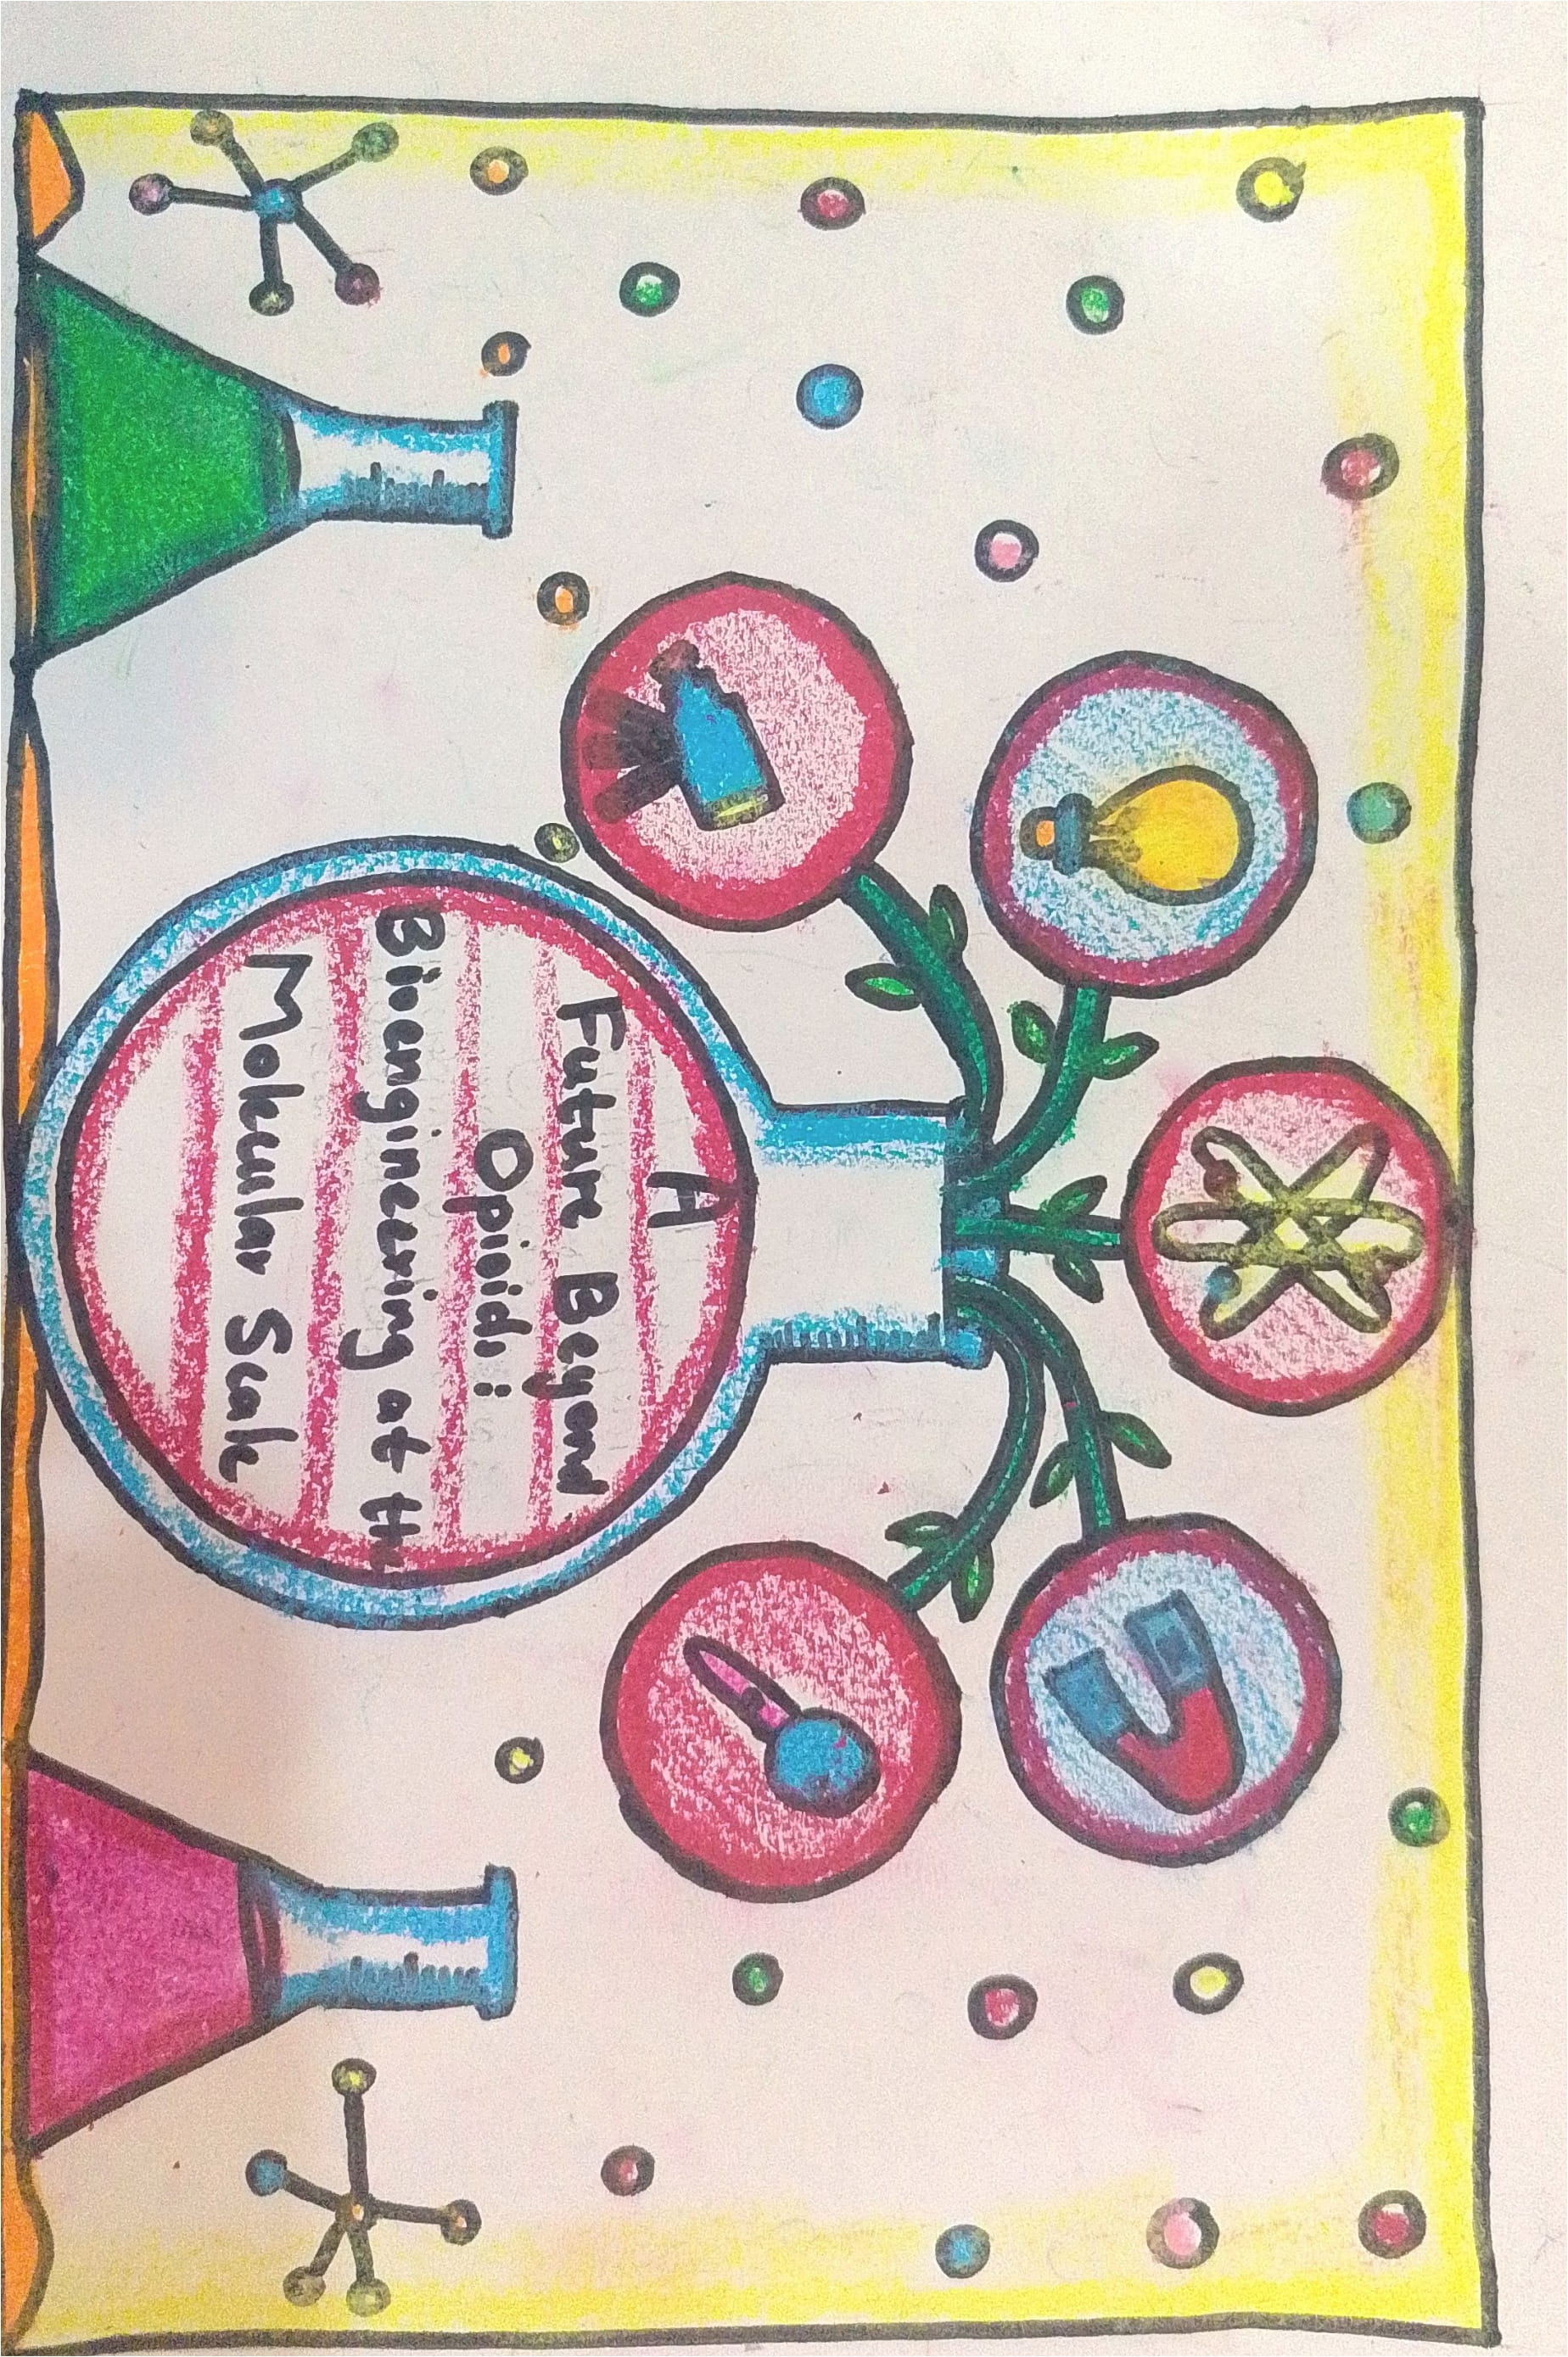 A
Future Beyond
Opioid:
Bioengineering at the
Molecular Scale